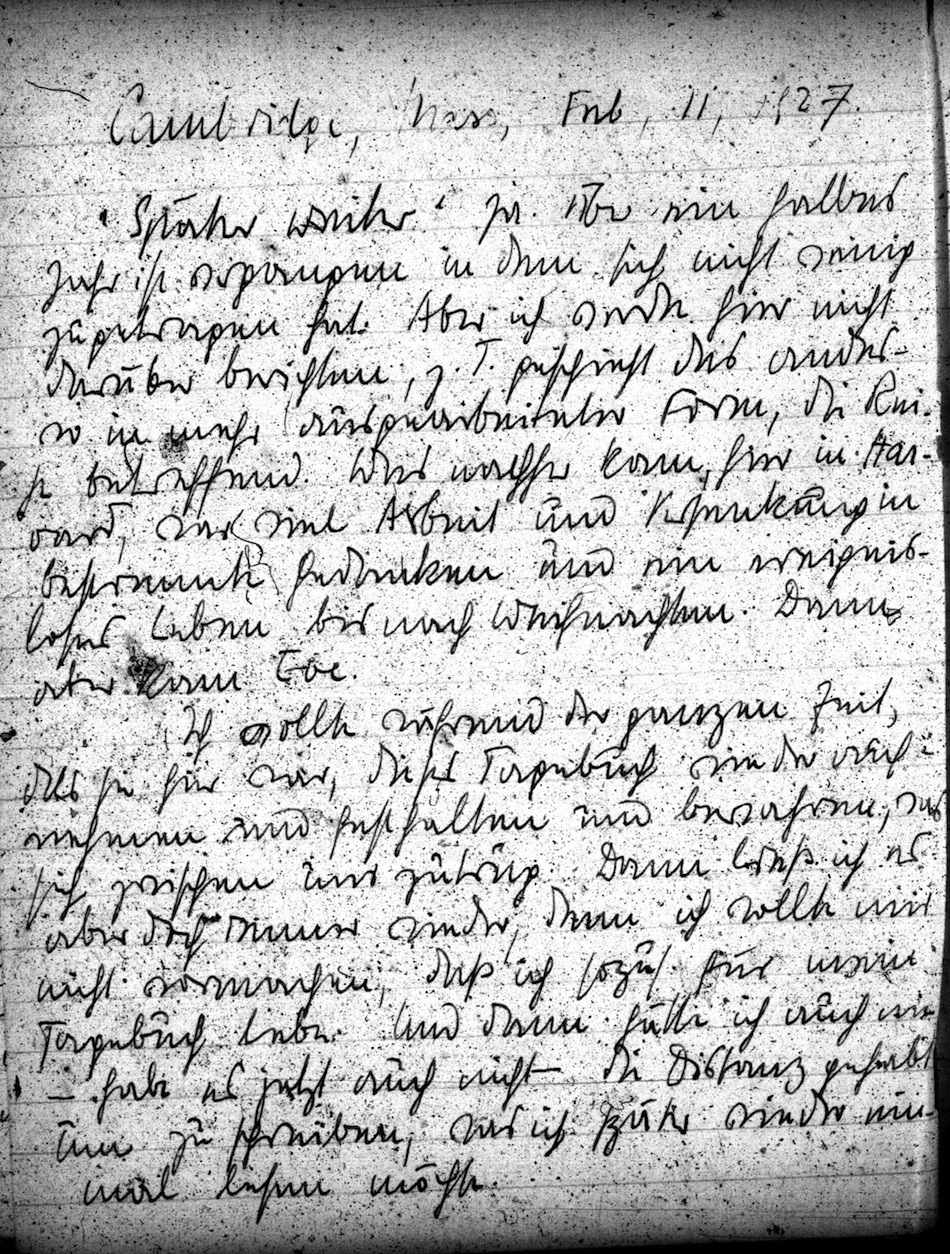 Cambridge, Mass, Feb, 11, 1927.
"Später weiter" Ja. Über ein halbes
Jahr ist vergangen in dem sich nicht wenig
zugetragen hat. Aber ich werde hier nicht
darüber berichten, z. T. geschieht das anders-
wo in mehr ausgearbeiteter Form, die Rei-
se betreffend. Was nachher kam, hier in Har-
vard, war viel Arbeit und Versenkung in
bestimmte Gedanken und ein ereignis-
loses Leben bis nach Weihnachten. Dann
aber kam Eve.
Ich wollte während der ganzen Zeit,
das sie hier war, dieses Tagebuch wieder auf-
nehmen und festhalten und bewahren, was
sich zwischen uns zutrug. Dann ließ ich es
aber doch immer wieder, denn ich wollte mir
nicht vormachen, daß ich sozus. für mein
Tagebuch lebe. Und dann hätte ich auch nie
– habe es jetzt auch nicht – die Distanz gehabt
um zu schreiben, was ich später wieder ein-
mal lesen möchte.